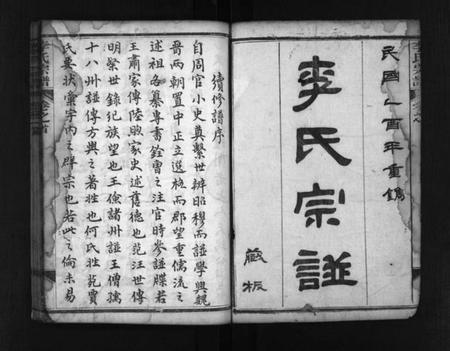 民國乙酉年重鐫
李氏宗譜
藏板
續修譜序
自周官小史奠繫世辨昭穆而譜學興魏
晉兩朝置中正立選檢而郡望重儒流之
述祖各纂專書銓曹之注官時參譜牒若
王肅家傳陸煦家史述舊德也范汪世傳
明粲世錄紀族望也王儉諸州譜王僧孺
十八州譜傳方輿之著姓也何氏姓苑賈
氏要狀彙宇內之群宗也若此之倫未易